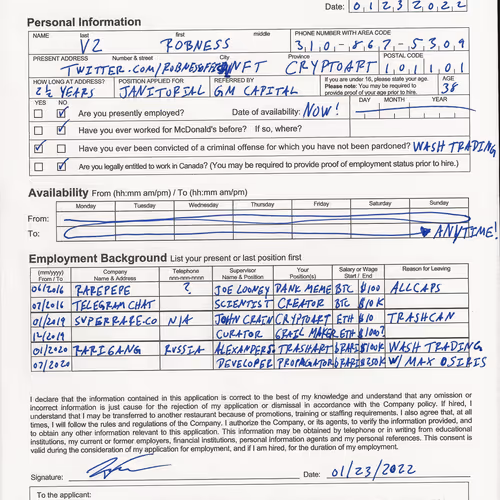 Date: 01232022
Personal Information
NAME last first middle PHONE NUMBER WITH AREA CODE
V2 ROBNESS 310-867-5309
PRESENT ADDRESS Number & street City Province POSTAL CODE
NFT CRYPTOART 101101
HOW LONG AT ADDRESS? POSITION APPLIED FOR REFERRED BY If you are under 16, please state your age. AGE
2½ YEARS JANITORIAL GM CAPITAL Please note: You may be required to provide proof of your age prior to hire. 38
YES NO DAY MONTH YEAR
Are you presently employed? Date of availability: NOW!
Have you ever worked for McDonald's before? If so, where?
Have you ever been convicted of a criminal offense for which you have not been pardoned? WASH TRADING
Are you legally entitled to work in Canada? (You may be required to provide proof of employment status prior to hire.)
Availability From (hh:mm am/pm) / To (hh:mm am/pm)
Monday Tuesday Wednesday Thursday Friday Saturday Sunday
From:
To: ANYTIME!
Employment Background List your present or last position first
(mm/yyyy) From / To Company Name & Address Telephone nnn-nnn-nnnn Supervisor Name & Position Your Position(s) Salary or Wage Start / End Reason for Leaving
06/2016 RAREPEPE ? JOE LOONEY DANK MEME BTC $100 ALLCAPS
07/2016 TELEGRAM CHAT SCIENTIST CREATOR BTC $10K
01/2019 SUPERRARE.CO N/A JOHN CRAIN CRYPTOART ETH $10 TRASHCAN
12/2019 CURATOR GRAIL MAKER ETH $100?
01/2020 RARIGANG RUSSIA ALEXANDER S. TRASHART $RARI $100K WASH TRADING
07/2020 DEVELOPER PROPAGATOR $RARI $250K W/ MAX OSIRIS
I declare that the information contained in this application is correct to the best of my knowledge and understand that any omission or
incorrect information is just cause for the rejection of my application or dismissal in accordance with the Company policy. If hired, I
understand that I may be transferred to another restaurant because of promotions, training or staffing requirements. I also agree that, at all
times, I will follow the rules and regulations of the Company. I authorize the Company, or its agents, to verify the information provided, and
to obtain any other information relevant to this application. This information may be obtained by telephone or in writing from educational
institutions, my current or former employers, financial institutions, personal information agents and my personal references. This consent is
valid during the consideration of my application for employment, and if I am hired, for the duration of my employment.
Signature: Date: 01/23/2022
To the applicant: